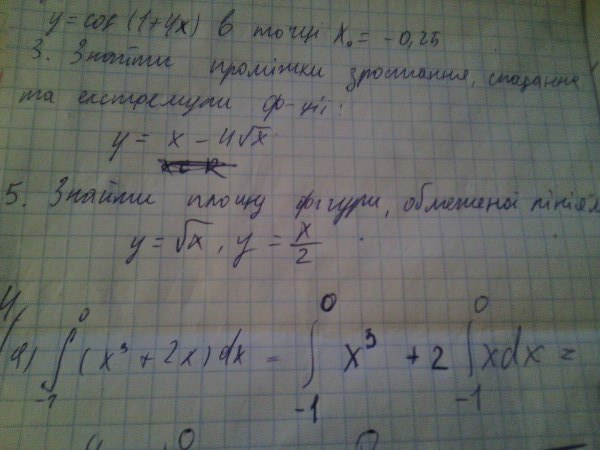 y = cos (1+4x) в точці x₀ = -0,25
3. Знайти проміжки зростання, спадання
та екстремуми ф-ції:
y = x - 4√x
x ∈ R
5. Знайти площу фігури, обмеженої лініям
y = √x, y = x/2.
4/
a) ∫₋₁⁰ (x³ + 2x) dx = ∫₋₁⁰ x³ + 2 ∫₋₁⁰ x dx =